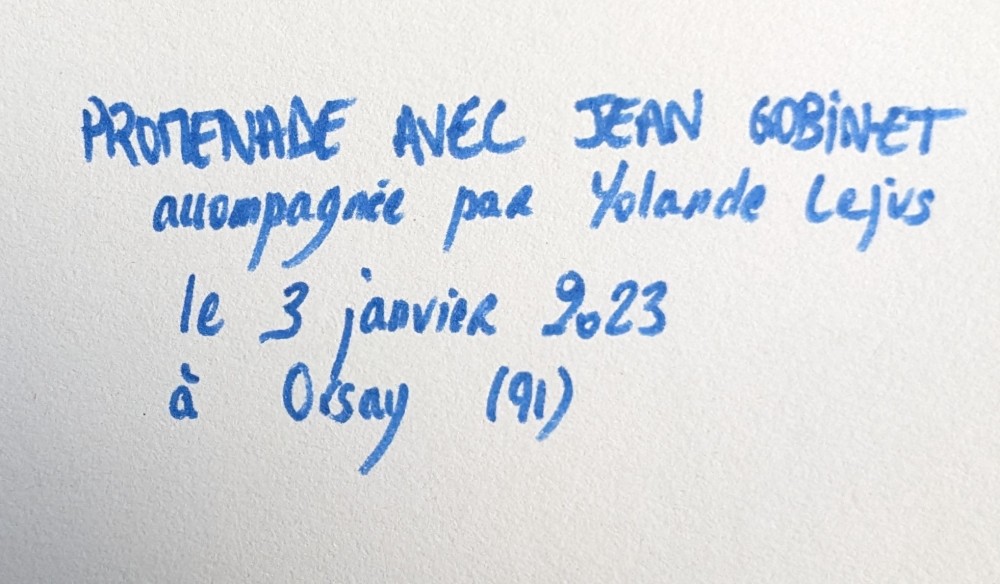 PROMENADE AVEC JEAN GOBINET
accompagnée par Yolande Lejus
le 3 janvier 2023
à Orsay (91)